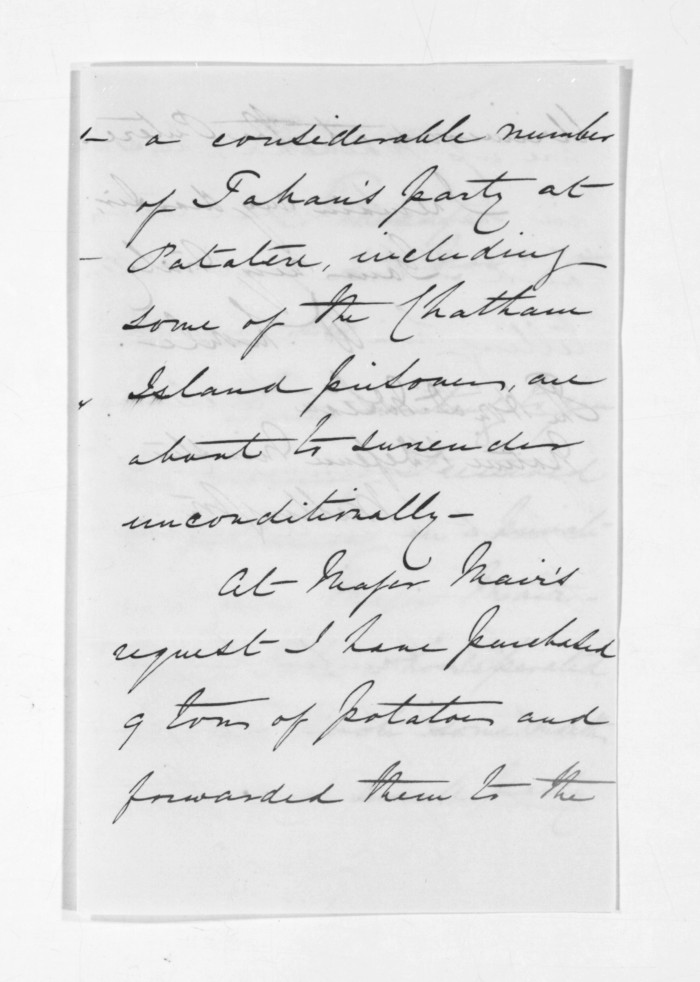 a considerable number
of Tahau's party at
Patatere, including
some of the Chatham
Island prisoners, are
about to surrender
unconditionally —
At Major Mair's
request I have purchased
9 tons of potatoes and
forwarded them to the